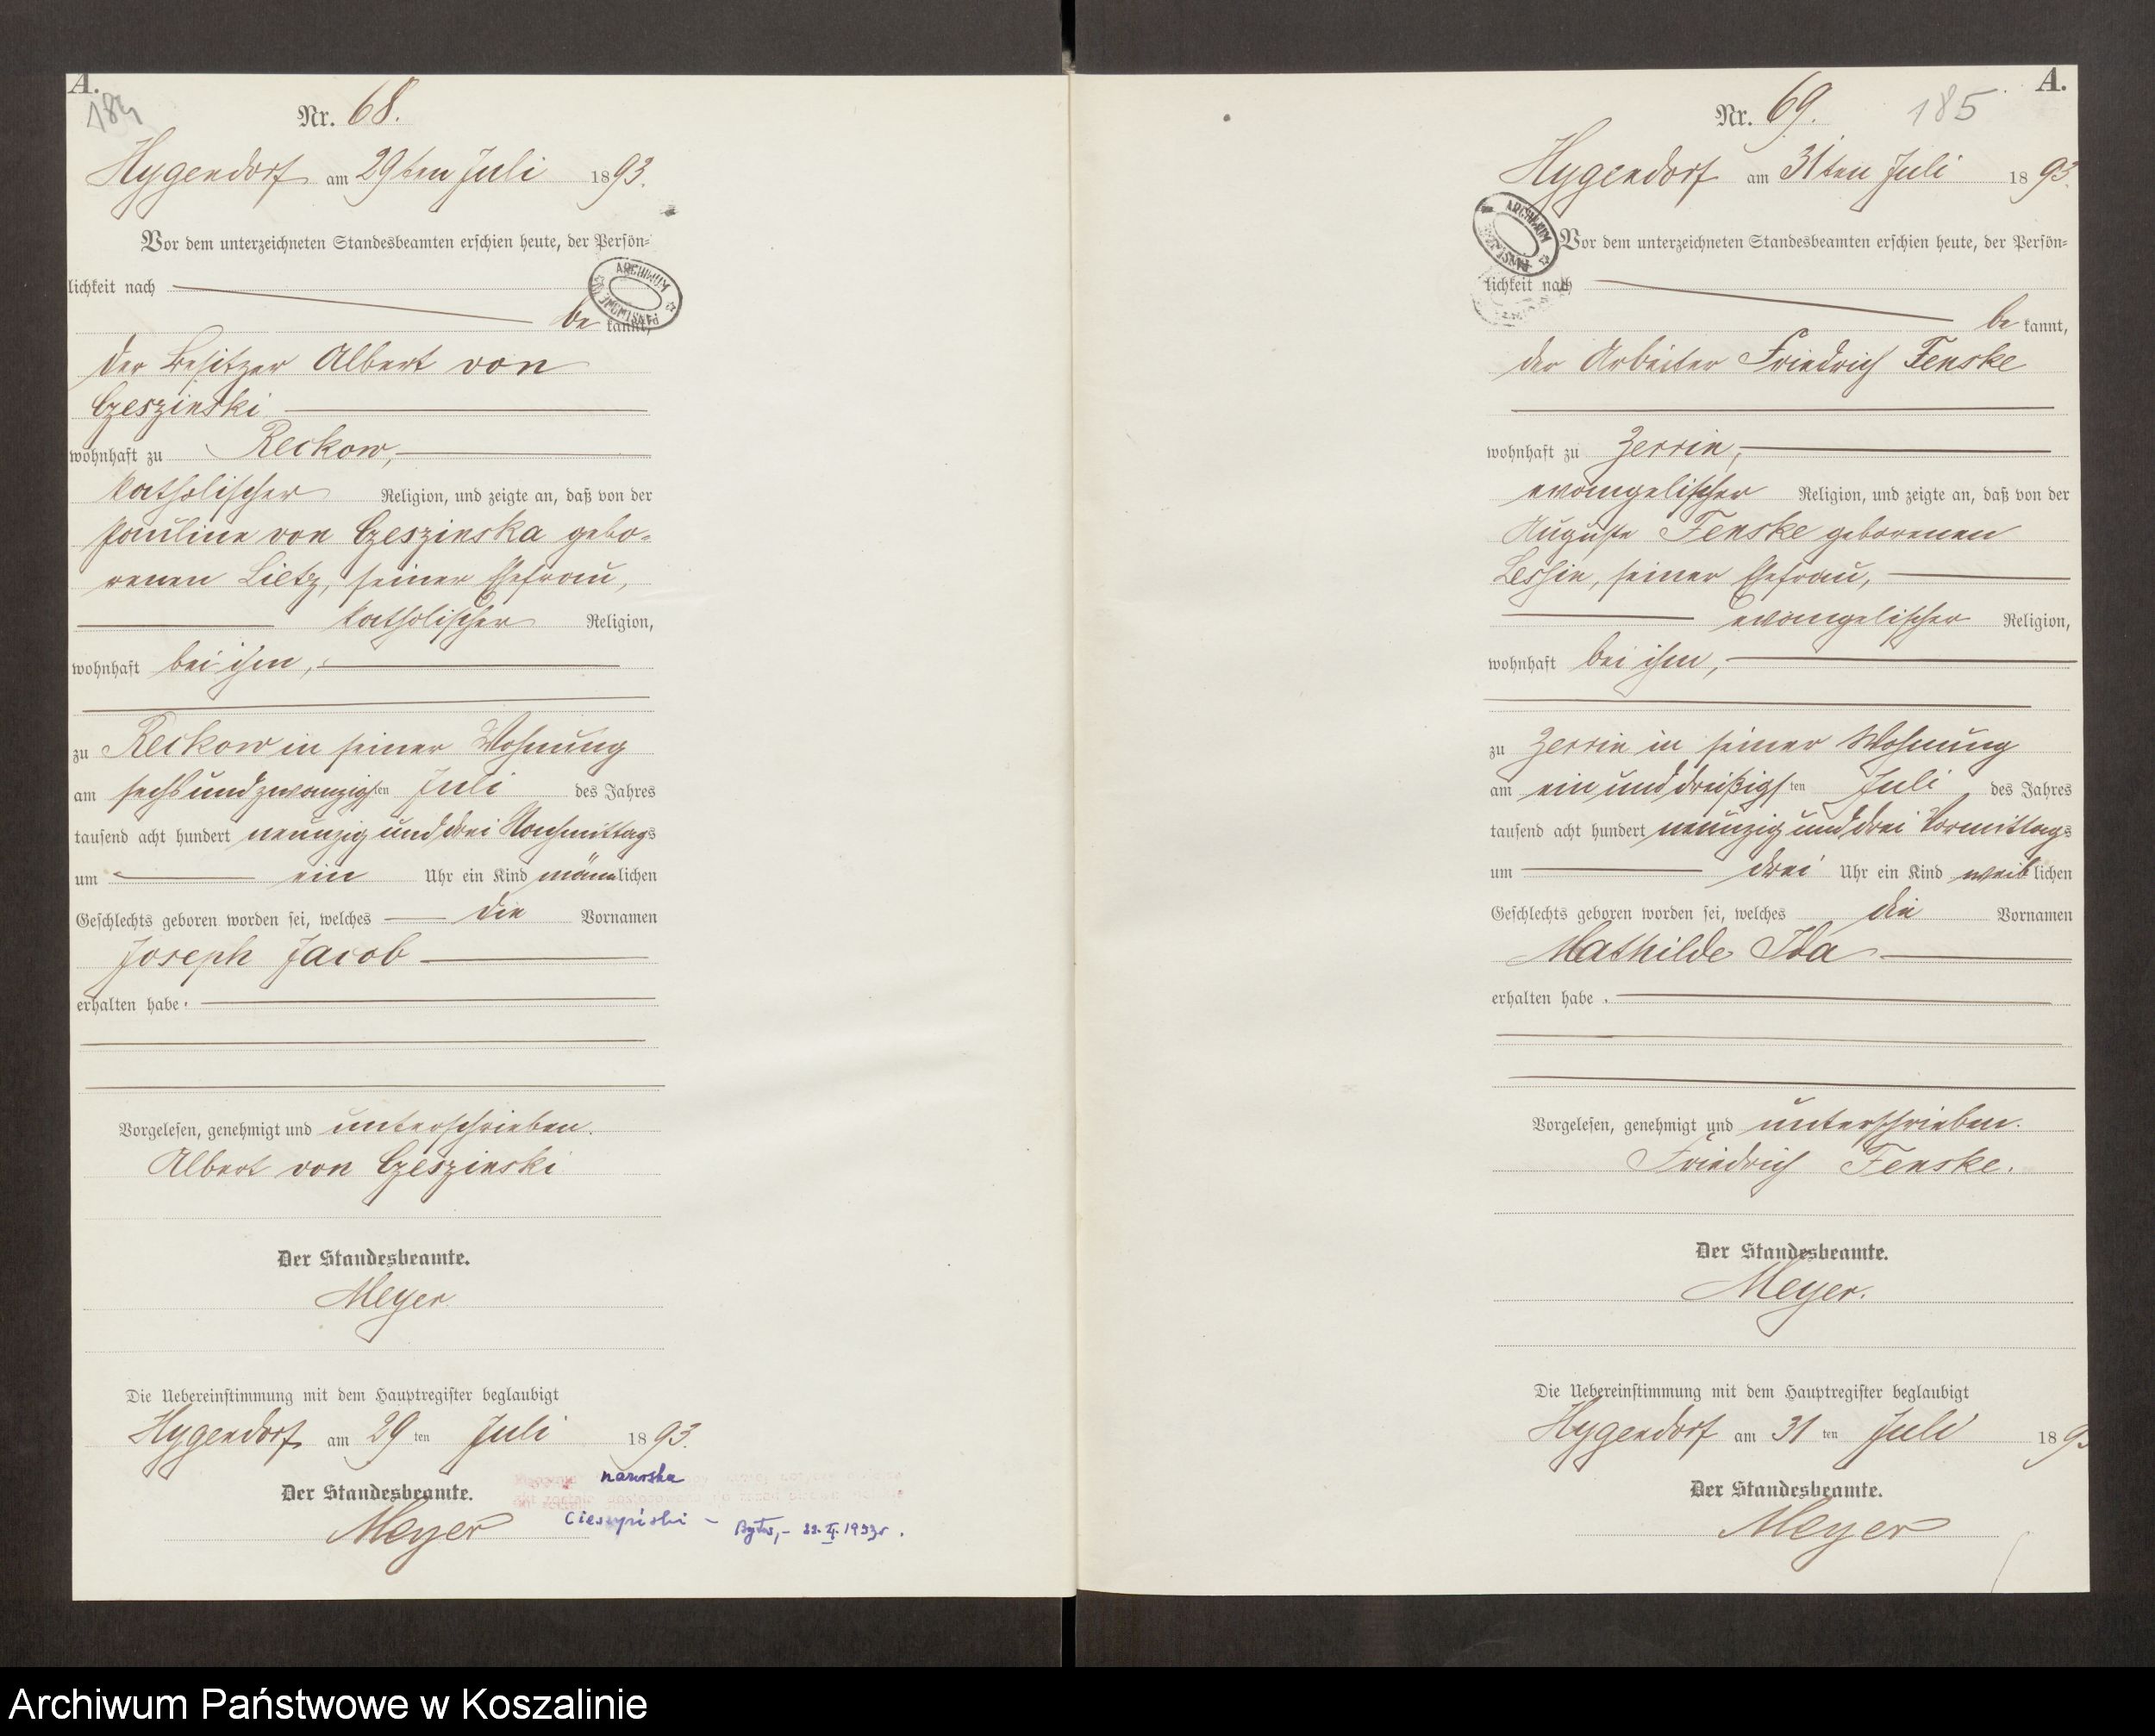 A.
184
Nr. 68.
Hygendorf am 29ten Juli 1893.
Vor dem unterzeichneten Standesbeamten erschien heute, der Persön-
lichkeit nach
be kannt,
der Besitzer Albert von
Czeszinski
wohnhaft zu Reckow,
katholischer Religion, und zeigte an, daß von der
Pauline von Czeszinska gebo-
renen Lietz, seiner Ehefrau,
katholischer Religion,
wohnhaft bei ihm,
zu Reckow in seiner Wohnung
am sechsundzwanzigsten Juli des Jahres
tausend acht hundert neunzig und drei Nachmittags
um ein Uhr ein Kind männlichen
Geschlechts geboren worden sei, welches die Vornamen
Joseph Jacob
erhalten habe.
Vorgelesen, genehmigt und unterschrieben.
Albert von Czeszinski
Der Standesbeamte.
Meyer
Die Uebereinstimmung mit dem Hauptregister beglaubigt
Hygendorf am 29 ten Juli 1893.
Der Standesbeamte.
Meyer
ARCHIWUM PAŃSTWOWE
A.
185
Nr. 69.
Hygendorf am 31ten Juli 1893.
ARCHIWUM
Vor dem unterzeichneten Standesbeamten erschien heute, der Persön-
lichkeit nach
be kannt,
der Arbeiter Friedrich Fenske
wohnhaft zu Zerrin,
evangelischer Religion, und zeigte an, daß von der
Auguste Fenske geborenen
Leshin, seiner Ehefrau,
evangelischer Religion,
wohnhaft bei ihm,
zu Zerrin in seiner Wohnung
am ein und dreißigsten Juli des Jahres
tausend acht hundert neunzig und drei Vormittags
um drei Uhr ein Kind weiblichen
Geschlechts geboren worden sei, welches die Vornamen
Mathilde Ida
erhalten habe.
Vorgelesen, genehmigt und unterschrieben.
Friedrich Fenske.
Der Standesbeamte.
Meyer.
Die Uebereinstimmung mit dem Hauptregister beglaubigt
Hygendorf am 31 ten Juli 189
Der Standesbeamte.
Meyer
Archiwum Państwowe w Koszalinie